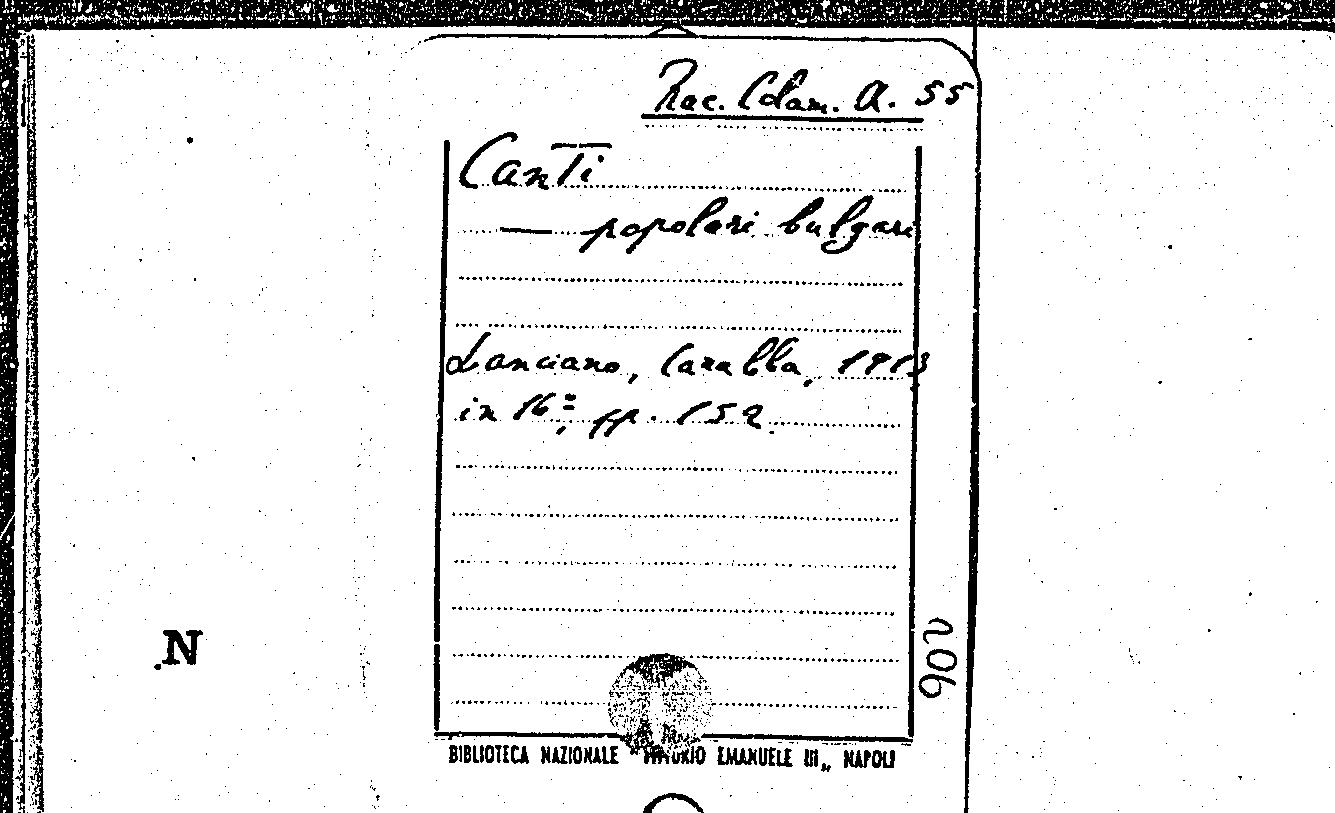 Rac. Colam. A. 55
Canti
— popolari bulgari
Lanciano, Carabba, 1913,
in 16°, pp. 152.
N
206
BIBLIOTECA NAZIONALE "VITTORIO EMANUELE III„ NAPOLI